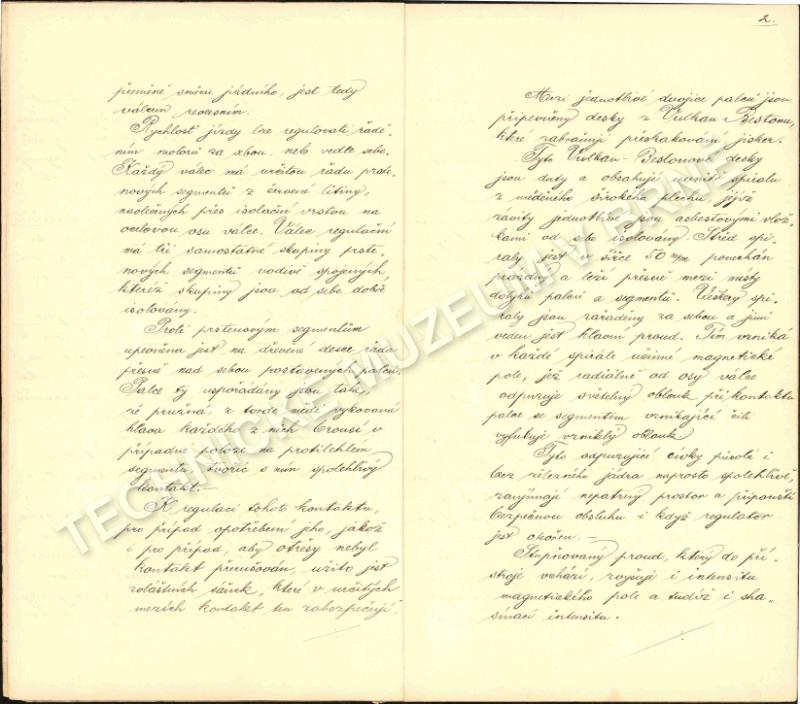 přeměně směru jízdního, jest tedy
válcem reversním.
Rychlost jízdy lze regulovati řadě-
ním motorů za sebou, neb vedle sebe.
Každý válec má určitou řadu prste-
nových segmentů z červené litiny,
nasvlečných přes isolační vrstvu na
ocelovou osu válce. Válec regulační
má tři samostatné skupiny prste-
nových segmentů vodivě spojených,
kteréž skupiny jsou od sebe dobře
isolovány.
Proti prstenovým segmentům
upevněna jest na dřevěné desce řada
přesně nad sebou postavených palců.
Palce ty uspořádány jsou tak,
že pružná, z tvrdé mědi vykovaná
hlava každého z nich brousí v
případné poloze na protilehlém
segmentu, tvoříc s ním spolehlivý
kontakt.—
K regulaci tohoto kontaktu,
pro případ opotřebení jeho, jakož
i pro případ, aby otřesy nebyl
kontakt přerušován, užito jest
zvláštních šárek, které v určitých
mezích kontakt ten zabezpečují.
2.
Mezi jednotlivé dvojice palců jsou
připevněny desky z Vulkan Bestonu,
které zabraňují přeskakování jisker.
Tyto Vulkan-Bestonové desky
jsou duty a obsahují uvnitř spirálu
z měděného širokého plechu, jejíž
závity jednotlivé jsou asbestovými vlož-
kami od sebe isolovány. Střed spi-
rály jest v šířce 50 m/m ponechán
prázdný a leží přesně mezi místy
dotyku palců a segmentů. Veškery spi-
rály jsou zařaděny za sebou a jimi
veden jest hlavní proud. Tím vzniká
v každé spirále účinné magnetické
pole, jež radiálně od osy válce
odpuzuje světelný oblouk při kontaktu
palce se segmentem vznikající čili
vyfukuje vzniklý oblouk.
Tyto odpuzující cívky působí i
bez železného jádra naprosto spolehlivě,
zaujímají nepatrný prostor a připouští
bezpečnou obsluhu i když regulator
jest otevřen.—
Stupňovaný proud, který do pří-
stroje vchází, zvyšuje i intensitu
magnetického pole a tudíž i zha-
šecí intensitu.
TECHNICKÉ MUZEUM V BRNĚ